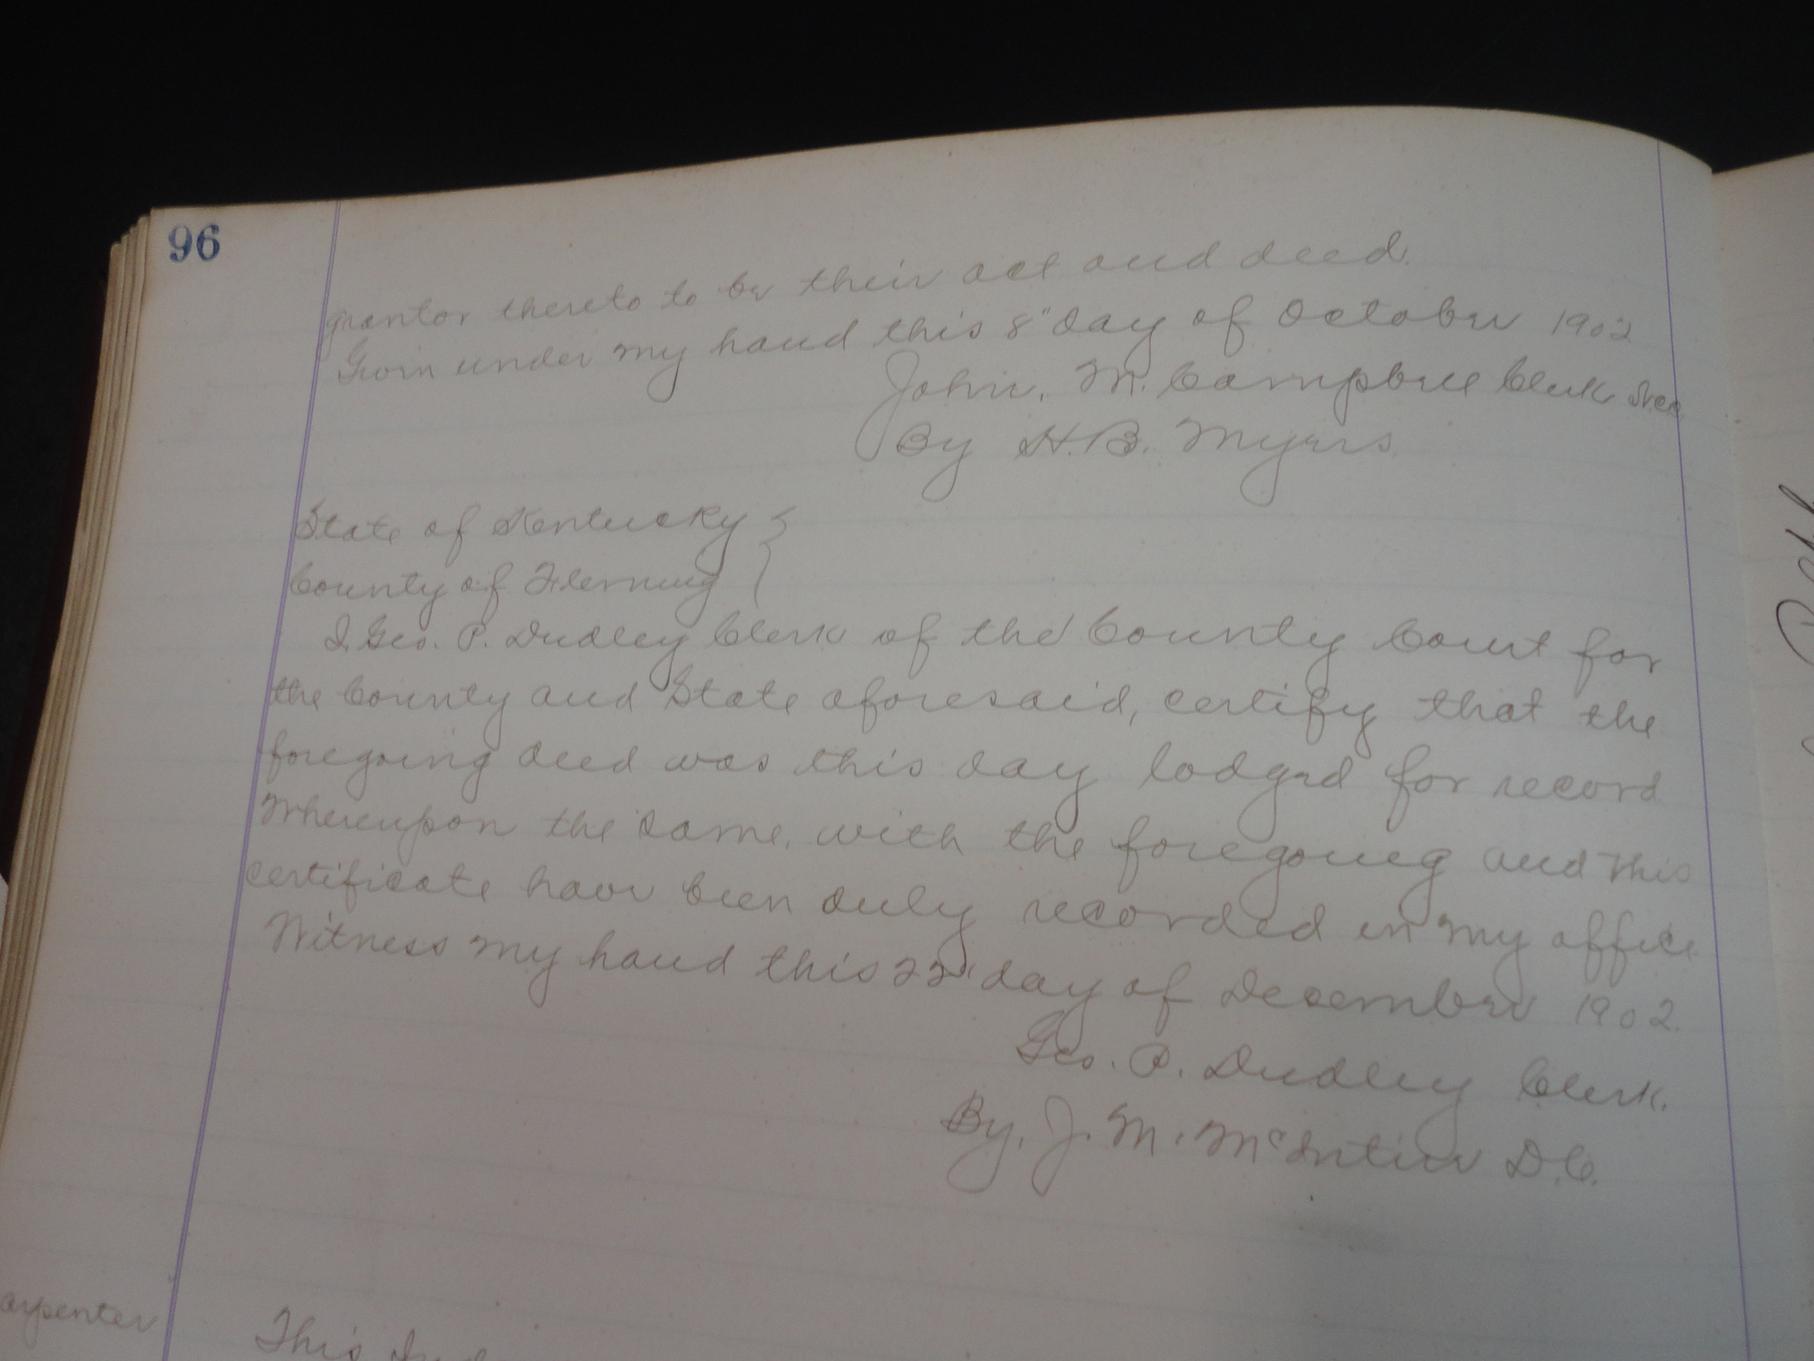 96
grantor thereto to be their act and deed.
Given under my hand this 8" day of October 1902
John. M. Campbell Clerk
By H.B. Myers.
State of Kentucky }
County of Fleming }
I, Geo. P. Dudley Clerk of the County Court for
the County and State aforesaid, certify that the
foregoing deed was this day lodged for record
Whereupon the same, with the foregoing and this
certificate have been duly recorded in my office.
Witness my hand this 22" day of December 1902.
Geo. P. Dudley Clerk.
By, J. M. McIntire D.C.
arpenter
This